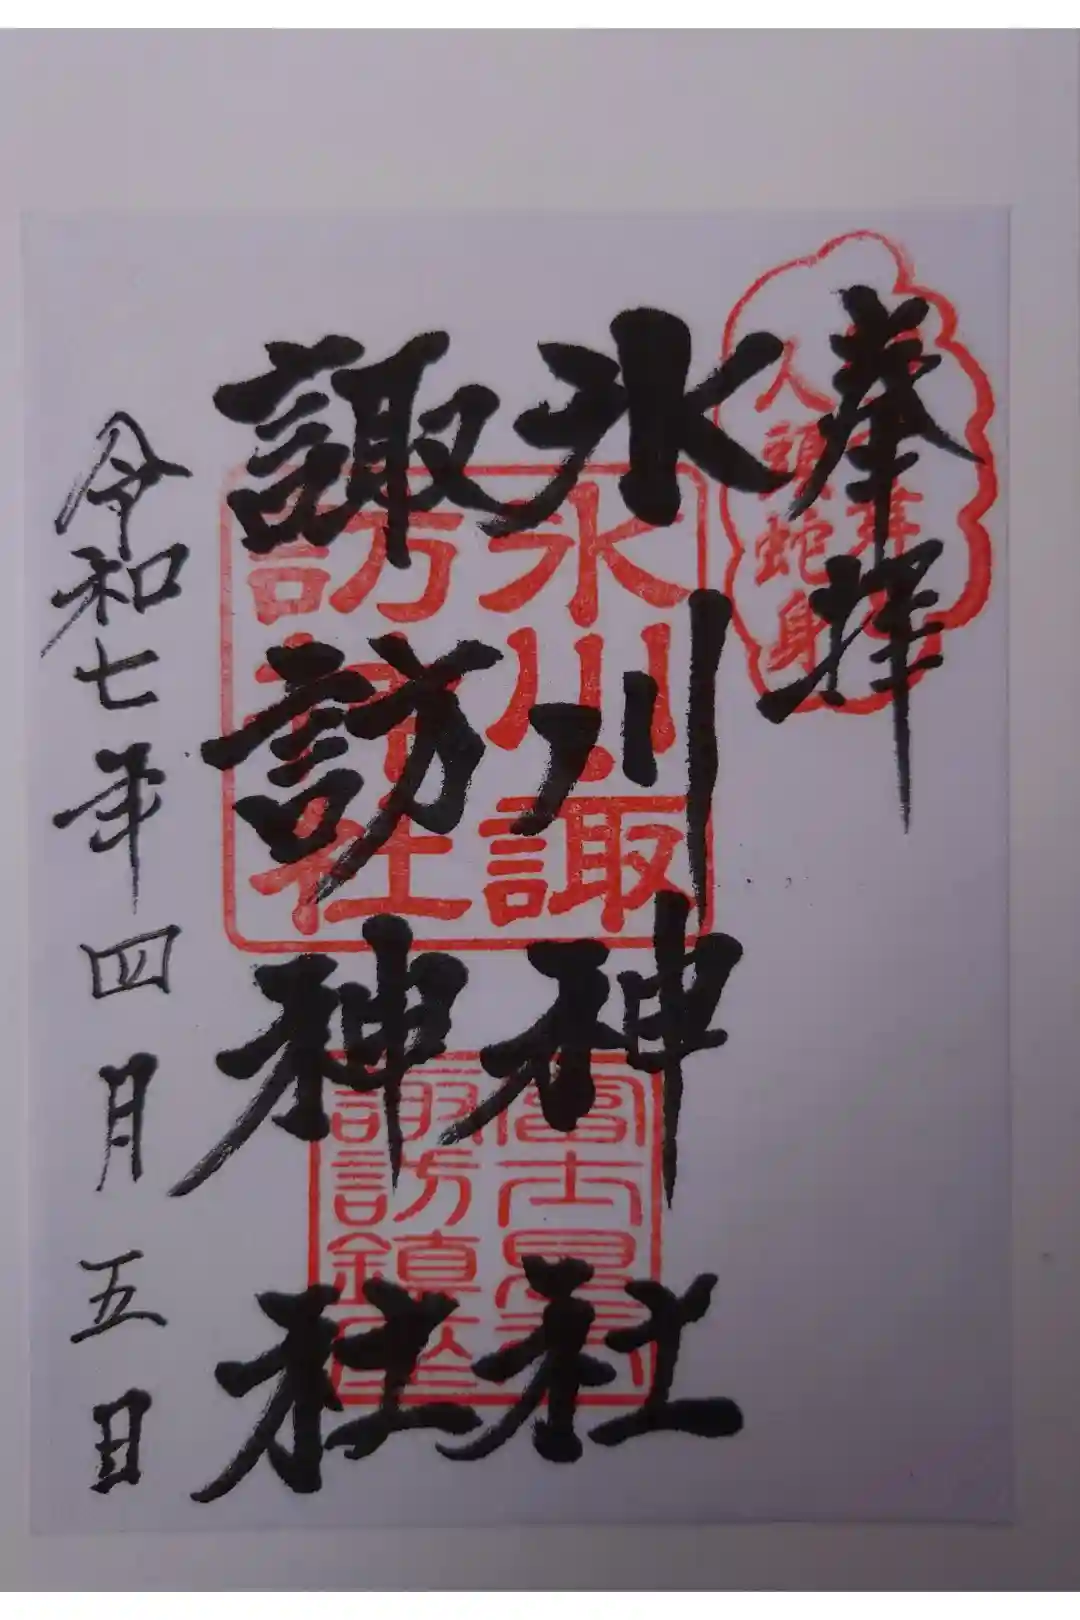 奉拝
人頭蛇身
氷川神社
諏訪神社
氷川諏
訪神社
富士見
諏訪鎮座
令和七年四月五日